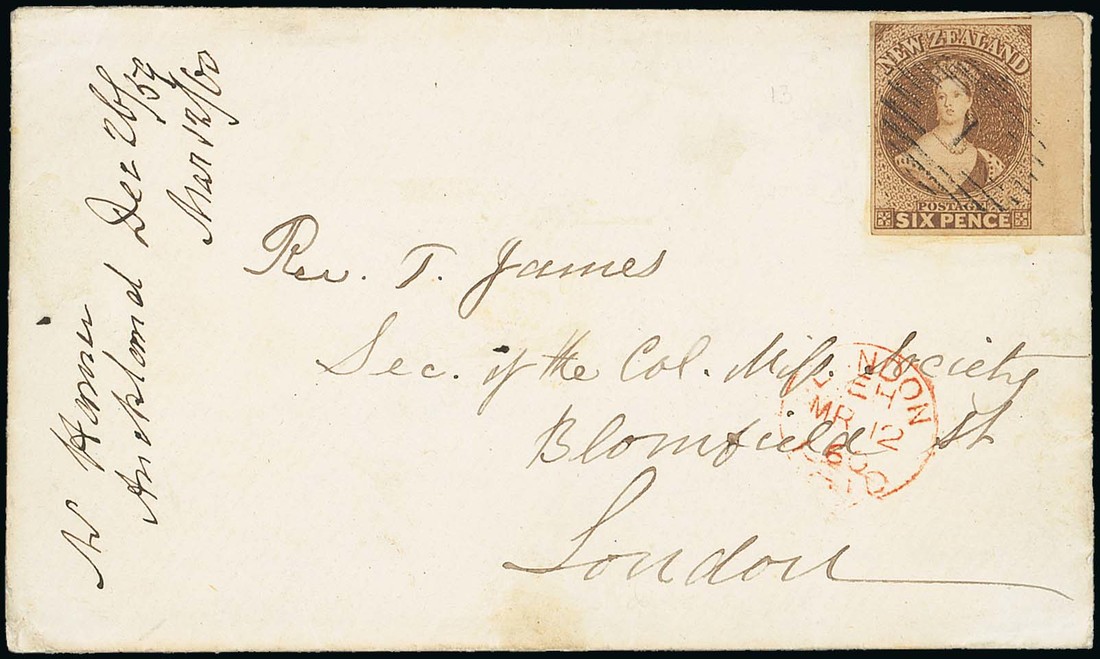 NEW ZEALAND
POSTAGE
SIX PENCE
13
Rev. T. James
Sec. of the Col. Miss. Society
Blomfield St
London
LONDON
EH
MR 12
60
PAID
Auckland Dec 26/59
Mar 12/60